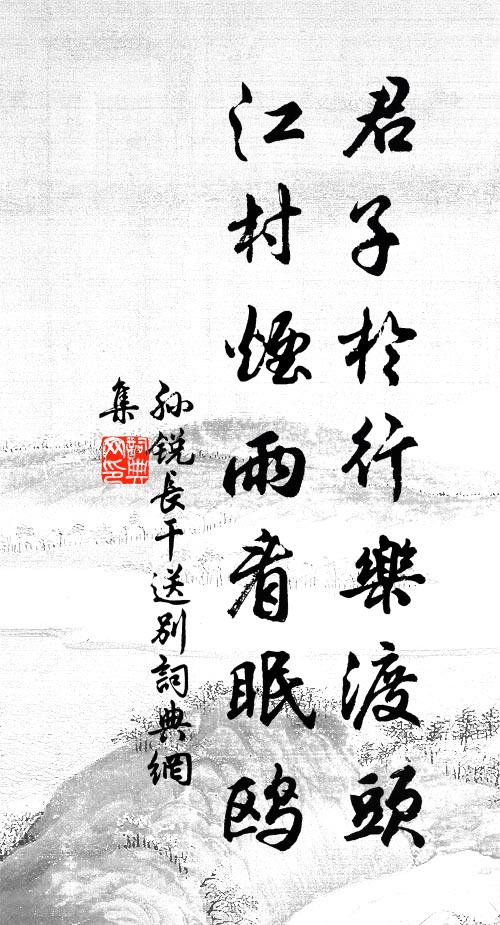 君子於行樂渡頭
江村煙雨看眠鷗
孫銳長干送別詞典網
集
詞典網印